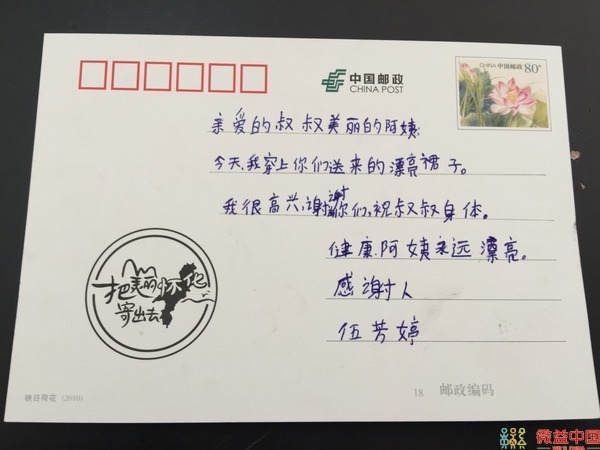 中国邮政
CHINA POST
中国邮政 80分
CHINA
亲爱的叔叔美丽的阿姨:
今天、我穿上你们送来的漂亮裙子。
我很高兴,谢谢你们,祝叔叔身体。
健康,阿姨永远漂亮。
感谢人
伍芳婷
把美丽怀化
寄出去
映日荷花 (2010)
18 邮政编码
微益中国